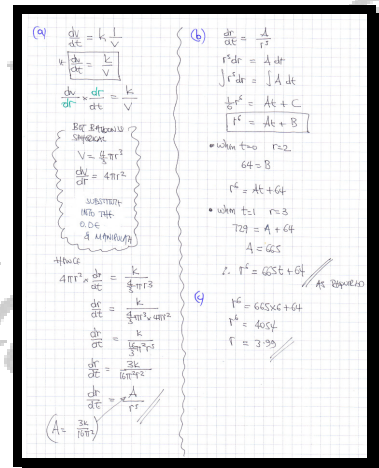 (a) dv/dt = k 1/V
dv/dt = k/V
dv/dr × dr/dt = k/V
BUT BALLOON IS
SPHERICAL
V = 4/3 πr³
dv/dr = 4πr²
SUBSTITUTE
INTO THE
O.D.E
& MANIPULATE
HENCE
4πr² × dr/dt = k / (4/3 πr³)
dr/dt = k / (4/3 πr³ × 4πr²)
dr/dt = k / (16/3 π²r⁵)
dr/dt = 3k / 16π²r⁵
dr/dt = A/r⁵
(A = 3k/16π²)
(b) dr/dt = A/r⁵
r⁵ dr = A dt
∫ r⁵ dr = ∫ A dt
1/6 r⁶ = At + C
r⁶ = At + B
• when t=0 r=2
64 = B
r⁶ = At + 64
• when t=1 r=3
729 = A + 64
A = 665
∴ r⁶ = 665t + 64
AS REQUIRED
(c) r⁶ = 665×6 + 64
r⁶ = 4054
r = 3.99